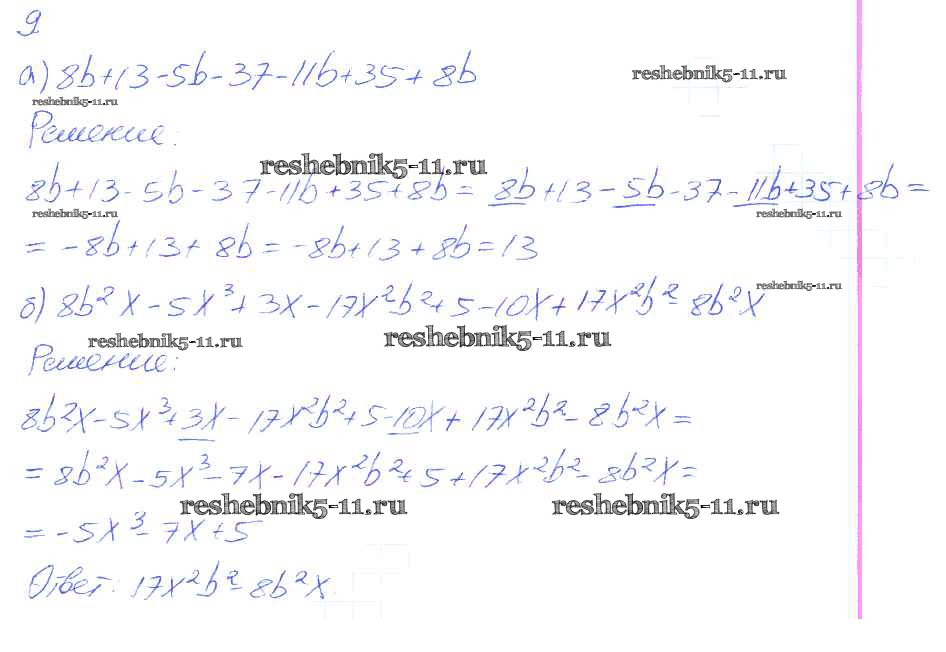 9
а) 8b+13-5b-37-11b+35+8b
reshebnik5-11.ru
reshebnik5-11.ru
Решение:
reshebnik5-11.ru
8b+13-5b-37-11b+35+8b= 8b+13-5b-37-11b+35+8b=
reshebnik5-11.ru
reshebnik5-11.ru
= -8b+13+8b=-8b+13+8b=13
б) 8b²x-5x³+3x-17x²b²+5-10x+17x²b²-8b²x
reshebnik5-11.ru
reshebnik5-11.ru
reshebnik5-11.ru
Решение:
8b²x-5x³+3x-17x²b²+5-10x+17x²b²-8b²x=
=8b²x-5x³-7x-17x²b²+5+17x²b²-8b²x=
reshebnik5-11.ru
reshebnik5-11.ru
=-5x³-7x+5
Ответ: 17x²b²-8b²x